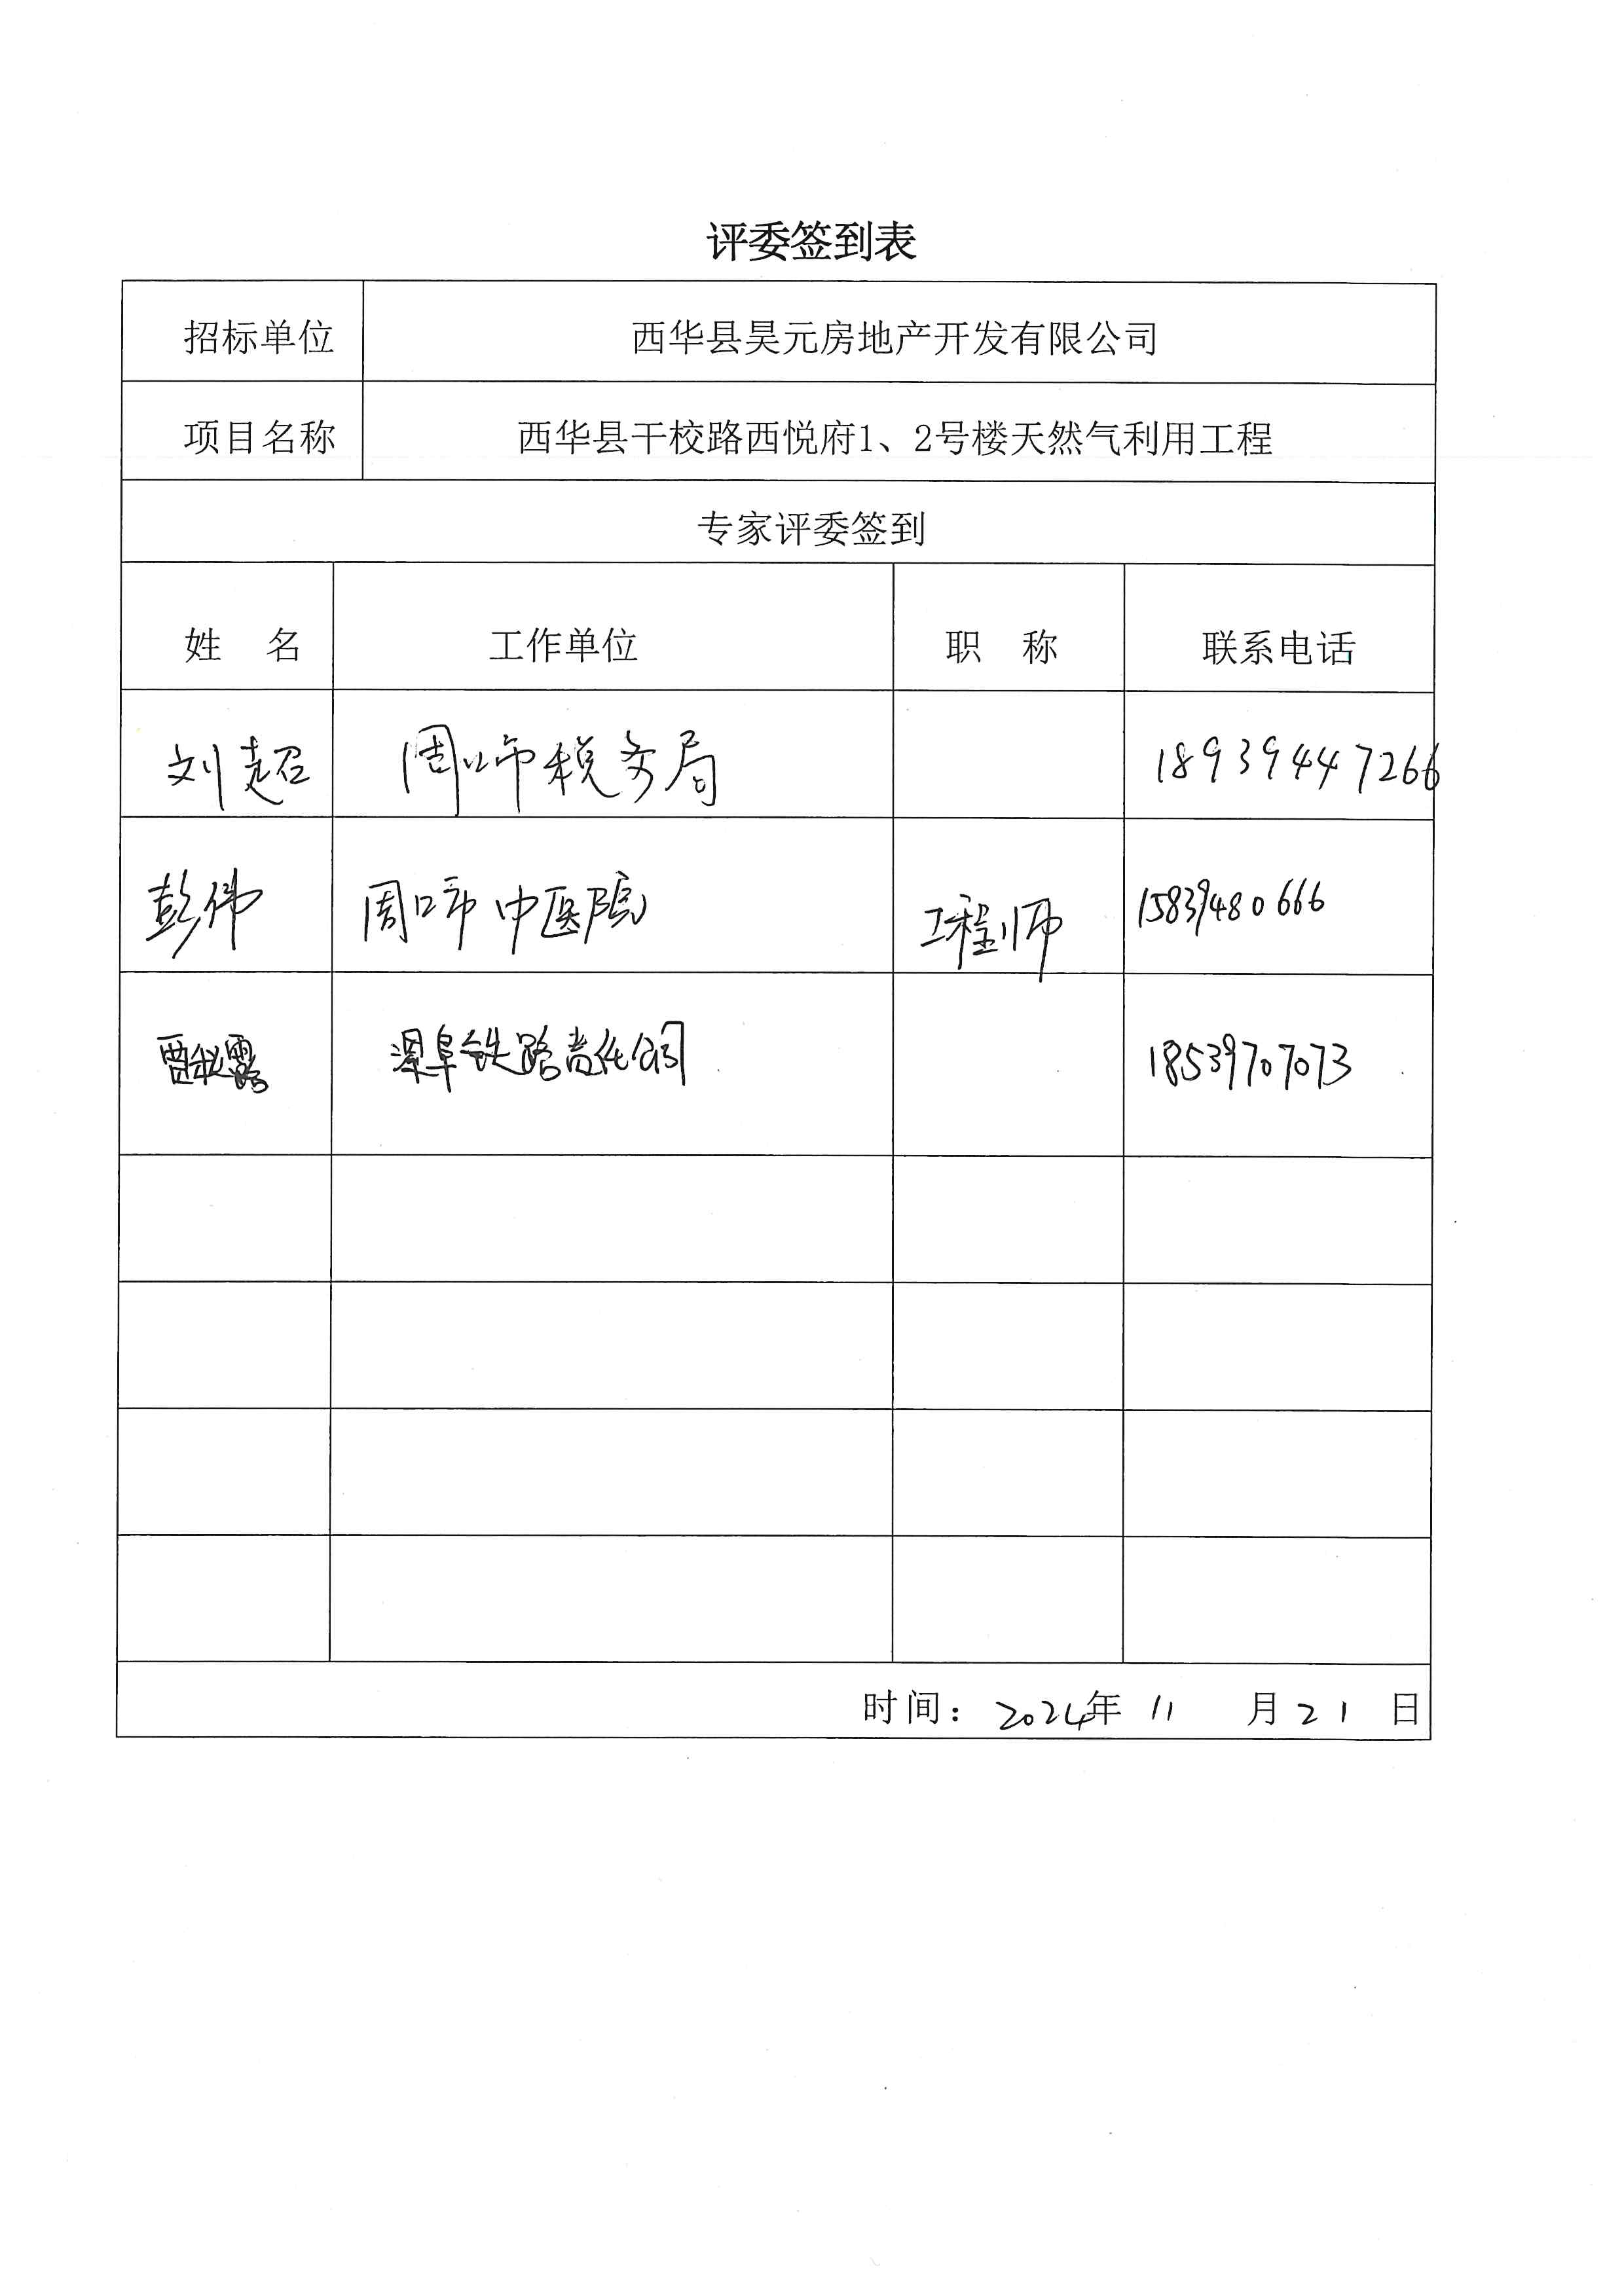 评委签到表
招标单位 西华县昊元房地产开发有限公司
项目名称 西华县干校路西悦府1、2号楼天然气利用工程
专家评委签到
姓 名 工作单位 职 称 联系电话
刘超 周口市税务局 18939447266
彭伟 周口市中医院 工程师 15839480666
贾 漯阜铁路责任公司 18539707073
时间：2024年 11 月 21 日